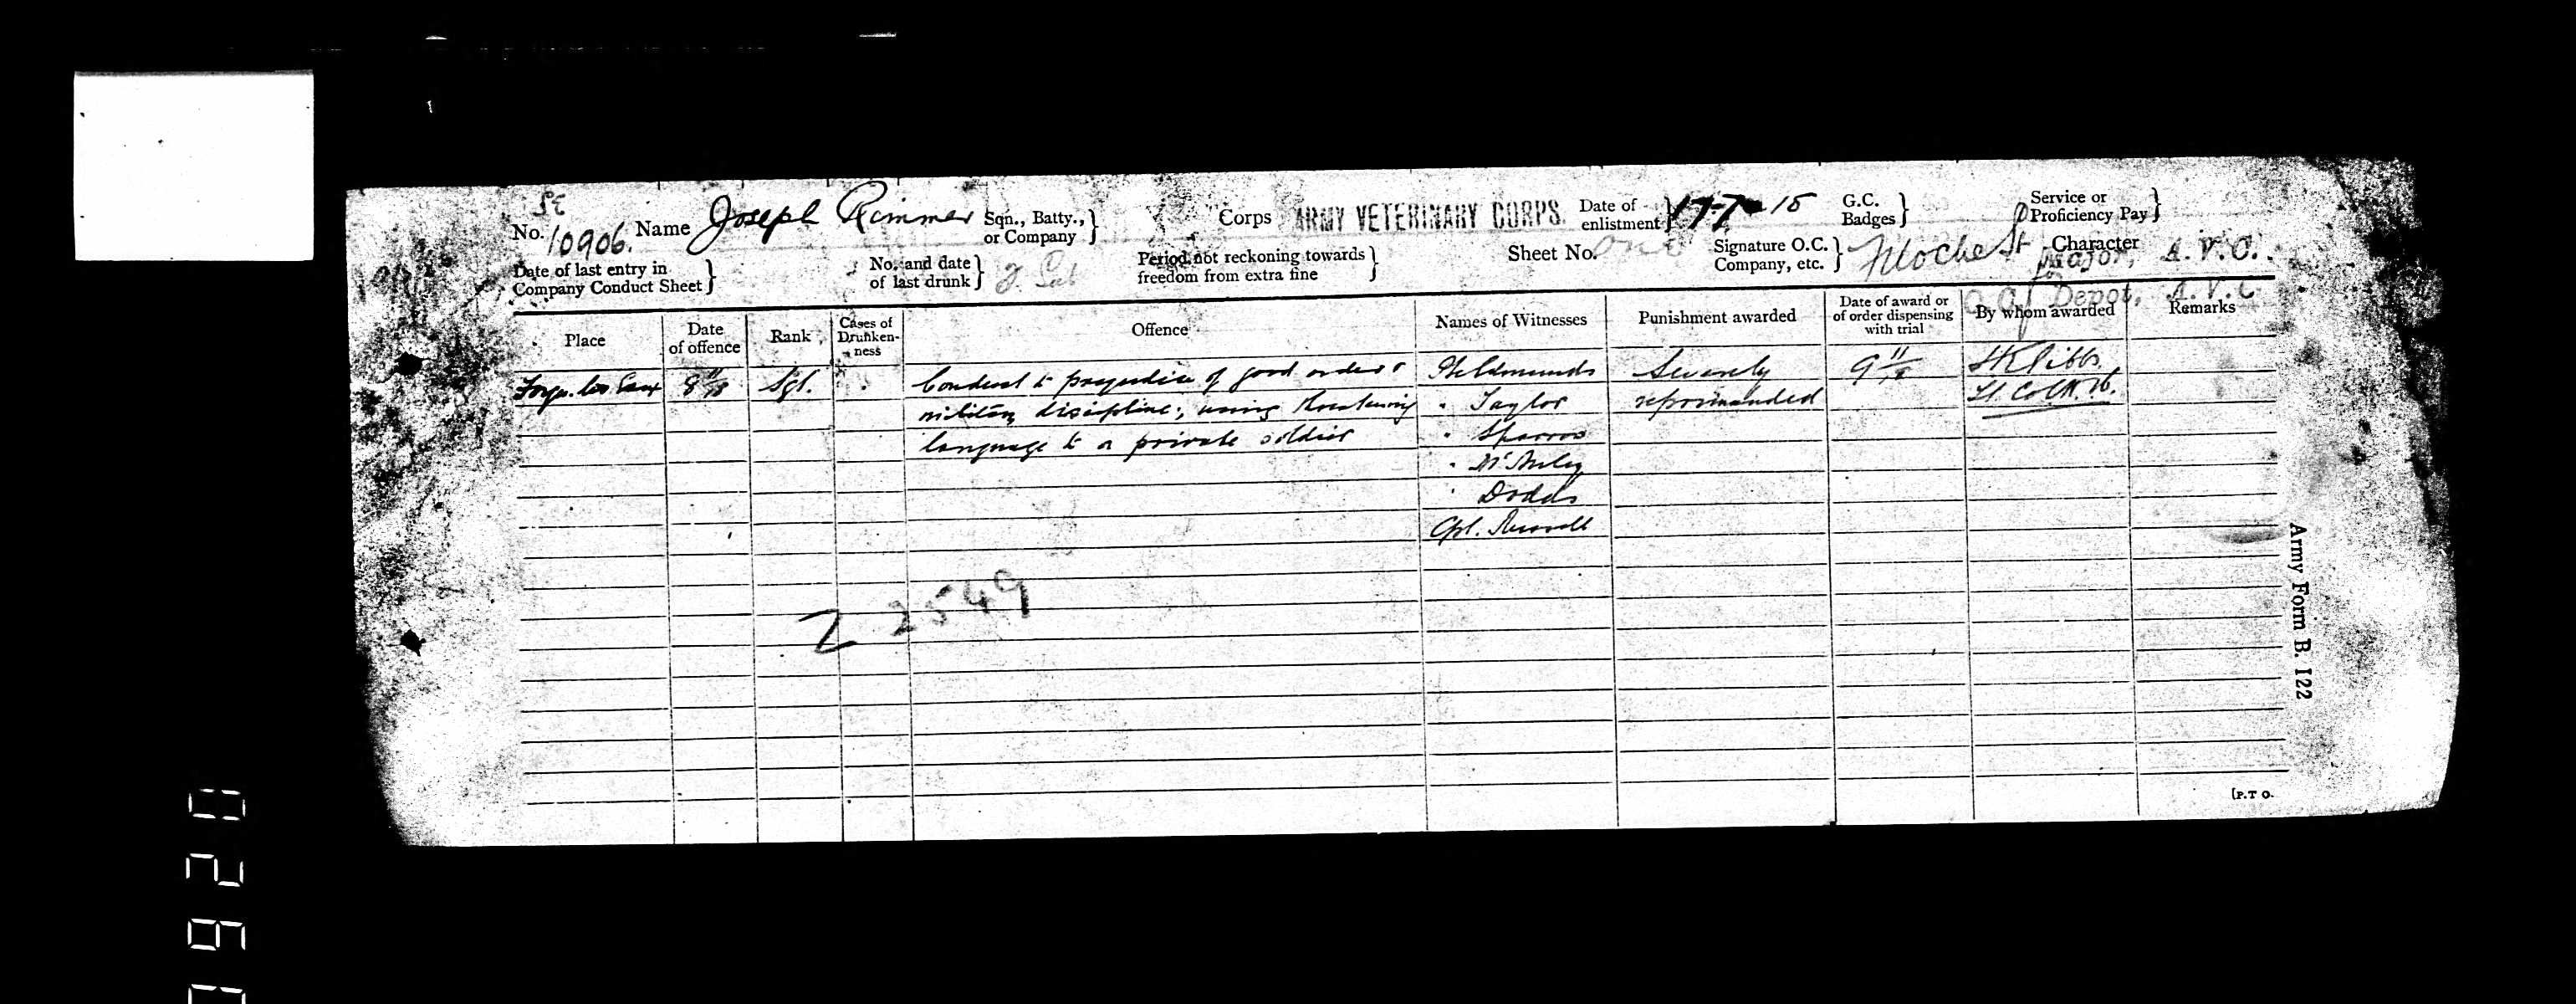 SE
No. 10906. Name Joseph Rimmer Sqn., Batty., or Company } Corps ARMY VETERINARY CORPS. Date of enlistment } 17-7-15 G.C. Badges } Service or Proficiency Pay }
Date of last entry in Company Conduct Sheet } No. and date of last drunk } Period not reckoning towards freedom from extra fine } Sheet No. One Signature O.C. Company, etc. } Character
Major, A.V.C.
for O.C. Depot, A.V.C.
Place Date of offence Rank Cases of Drunkenness Offence Names of Witnesses Punishment awarded Date of award or of order dispensing with trial By whom awarded Remarks
8 11/18 Sgt. Conduct to prejudice of good order & Edmunds Severely 9 11/18
military discipline; using threatening " Taylor reprimanded Lt. Col.
language to a private soldier " Sparrow
" Dodds
Cpl.
2 2549
Army Form B. 122
[P.T O.
0260